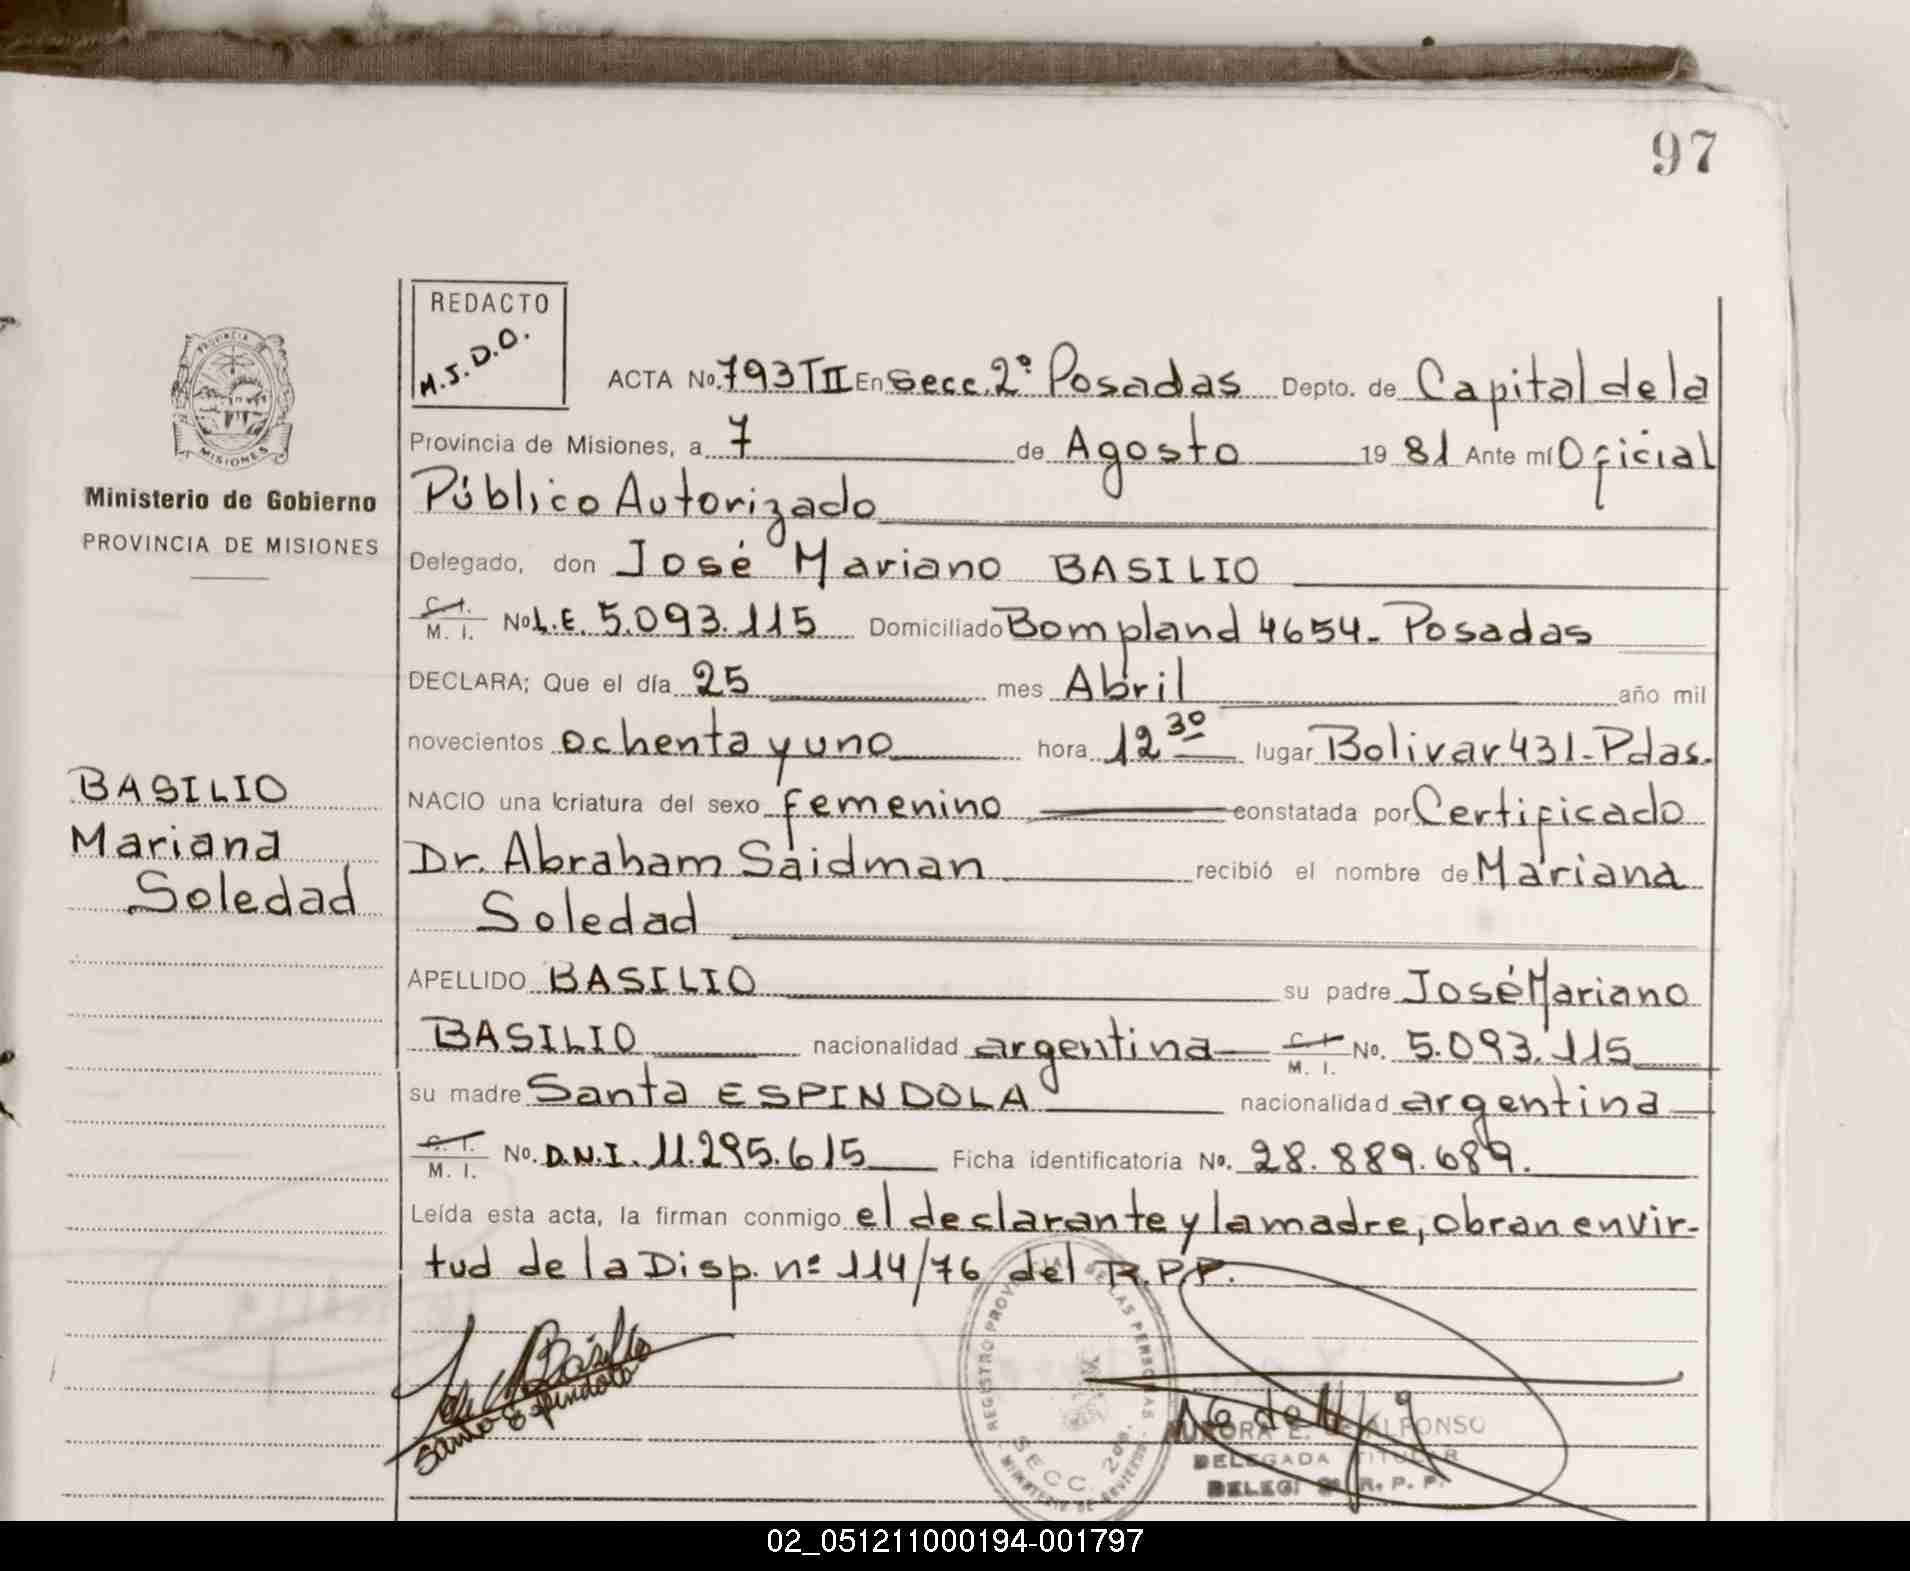 97
REDACTO
M.J.D.O.
ACTA No. 793 T II En Secc. 2º Posadas Depto. de Capital de la
Provincia de Misiones, a 7 de Agosto 19 81 Ante mí Oficial
Público Autorizado
Delegado, don José Mariano BASILIO
C. I.
M. I. No L.E. 5.093.115 Domiciliado Bompland 4654- Posadas
DECLARA; Que el día 25 mes Abril año mil
novecientos ochenta y uno hora 12 30 lugar Bolivar 431- Pdas.
NACIO una criatura del sexo femenino constatada por Certificado
Dr. Abraham Saidman recibió el nombre de Mariana
Soledad
APELLIDO BASILIO su padre José Mariano
BASILIO nacionalidad argentina C. I. No. 5.093.115
M. I.
su madre Santa ESPINDOLA nacionalidad argentina
C. I.
M. I. No. D.N.I. 11.295.615 Ficha identificatoria No. 28.889.689.
Leída esta acta, la firman conmigo el declarante y la madre, obran en vir-
tud de la Disp. nº 114/76 del R.P.P.
PROVINCIA
MISIONES
Ministerio de Gobierno
PROVINCIA DE MISIONES
BASILIO
Mariana
Soledad
Basilio
Santa Espindola
REGISTRO PROVINCIAL DE LAS PERSONAS
SECC. 2da.
MINISTERIO DE GOBIERNO
AURORA E. DE ALFONSO
DELEGADA TITULAR
R. P. P.
02_051211000194-001797